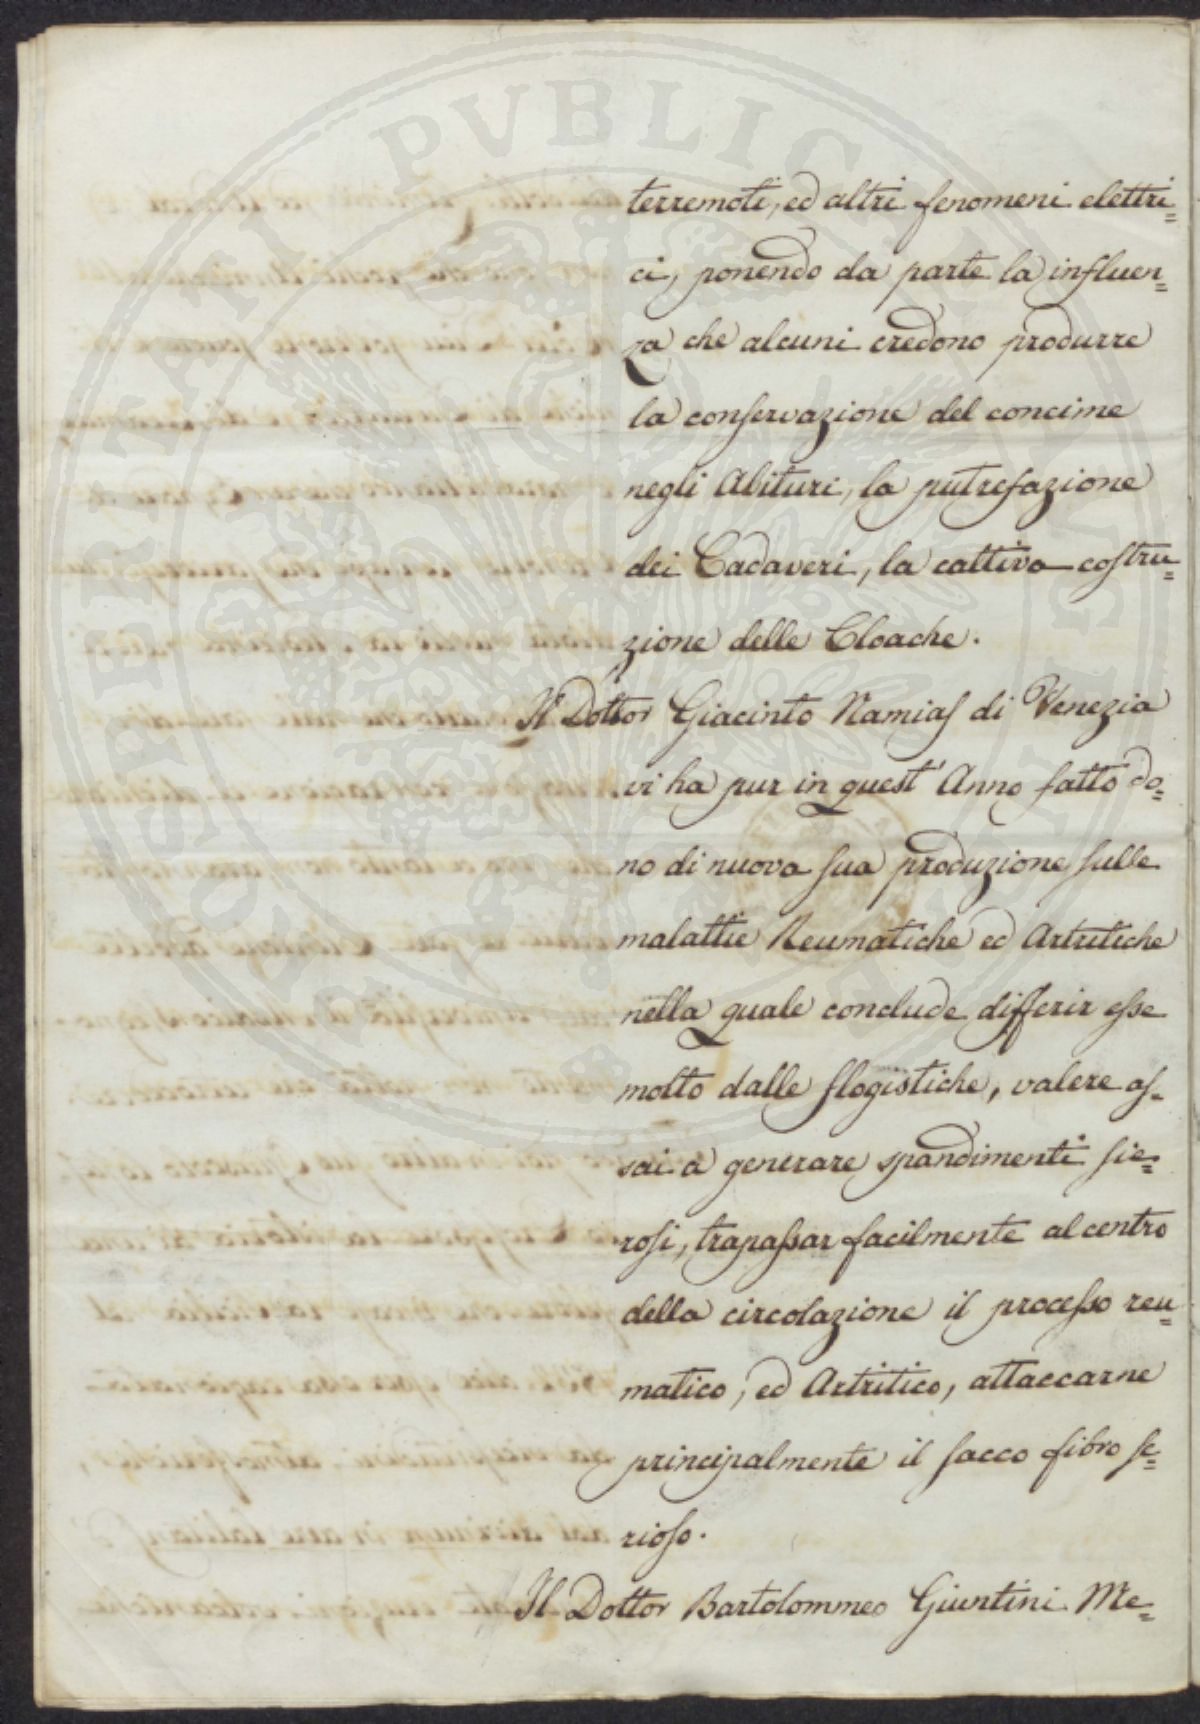 terremoti, ed altri fenomeni elettri=
ci, ponendo da parte la influen=
za che alcuni credono produrre
la conservazione del concime
negli Abituri, la putrefazione
dei Cadaveri, la cattiva costru=
zione delle Cloache.
Il Dottor Giacinto Namias di Venezia
vi ha pur in quest' Anno fatto do=
no di nuova sua produzione sulle
malattie Reumatiche ed Artritiche
nella quale conclude differir esse
molto dalle flogistiche, valere as=
sai a generare spandimenti sie=
rosi, trapassar facilmente al centro
della circolazione il processo reu=
matico, ed Artritico, attaccarne
principalmente il sacco fibro se=
rioso.
Il Dottor Bartolommeo Giuntini Me=
PROSPERITATI PUBLICAE AUGENDAE